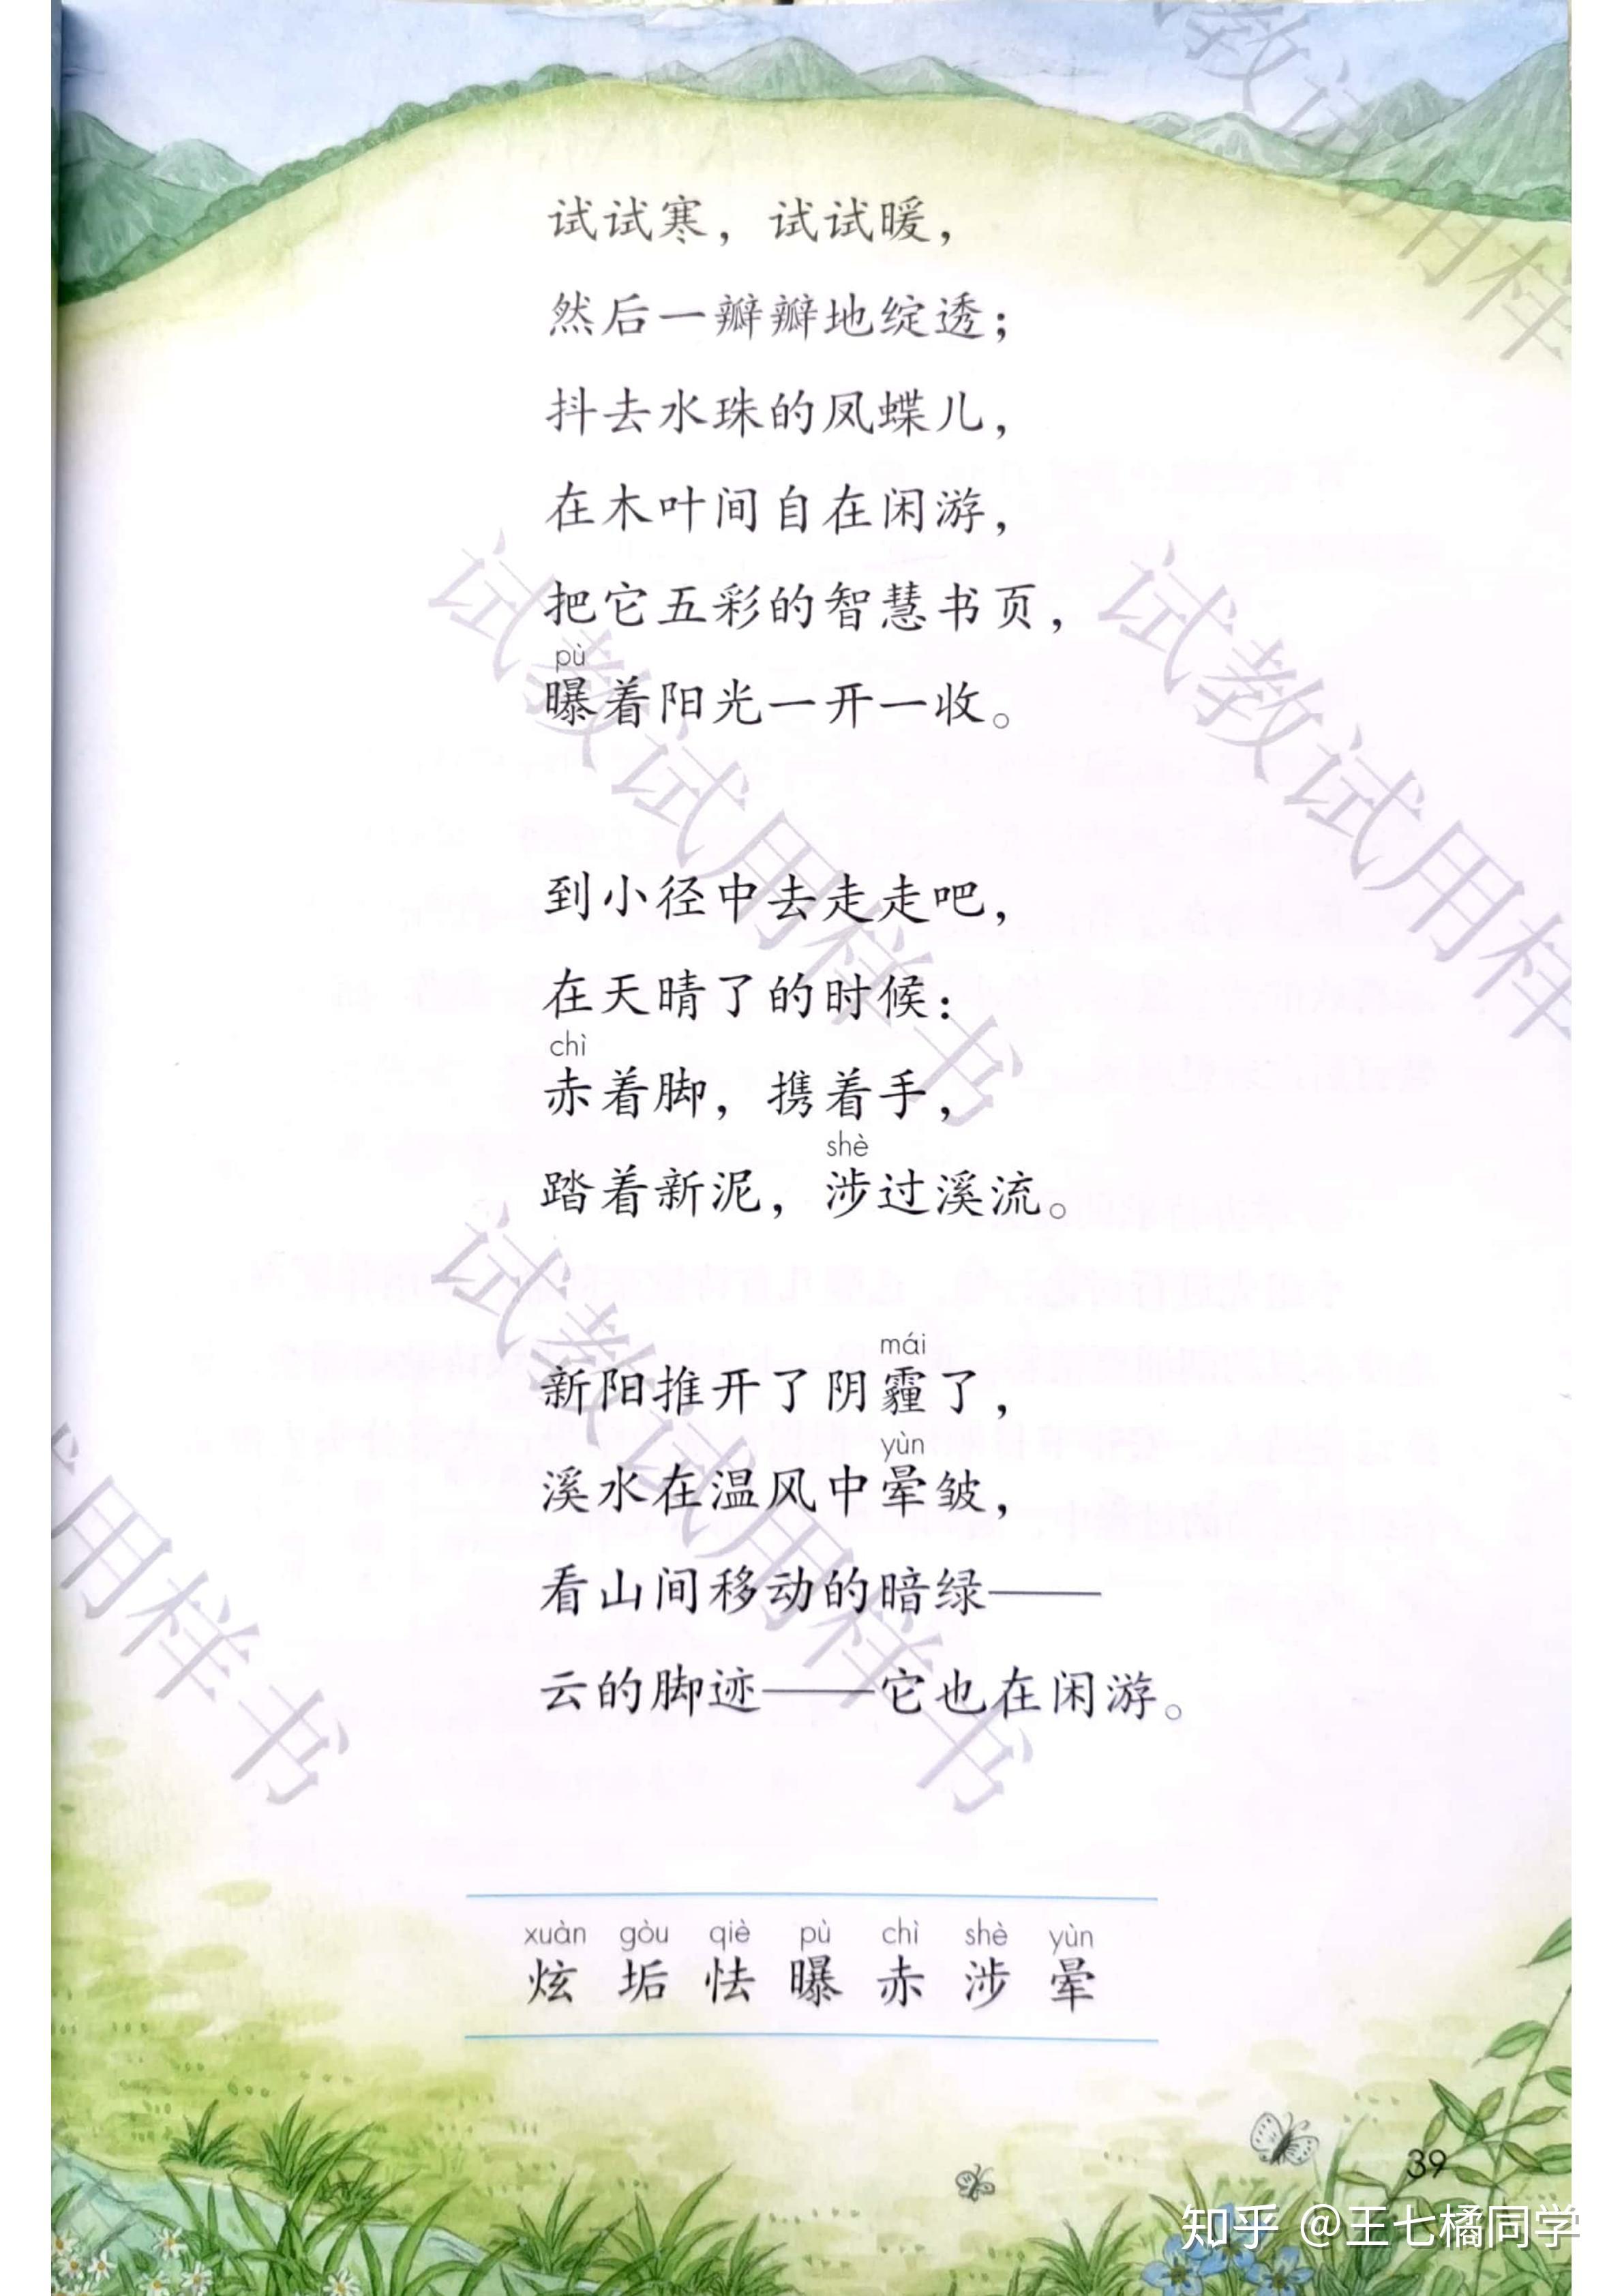 试试寒，试试暖，
然后一瓣瓣地绽透；
抖去水珠的凤蝶儿，
在木叶间自在闲游，
把它五彩的智慧书页，
pù
曝着阳光一开一收。
到小径中去走走吧，
在天晴了的时候：
chì
赤着脚，携着手，
shè
踏着新泥，涉过溪流。
mái
新阳推开了阴霾了，
yùn
溪水在温风中晕皱，
看山间移动的暗绿——
云的脚迹——它也在闲游。
xuàn gòu qiè pù chì shè yùn
炫 垢 怯 曝 赤 涉 晕
39
知乎 @王七橘同学
试教试用样书
试教试用样
试教试用样书
用样书
教试用样